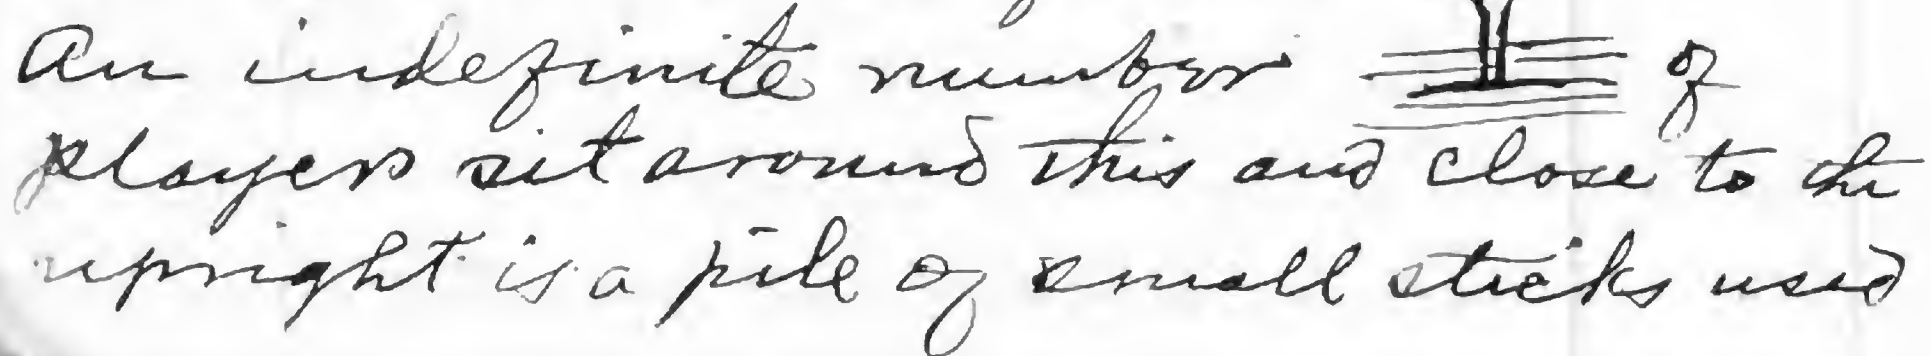 An indefinite number of
players sit around this and close to the
upright is a pile of small sticks used